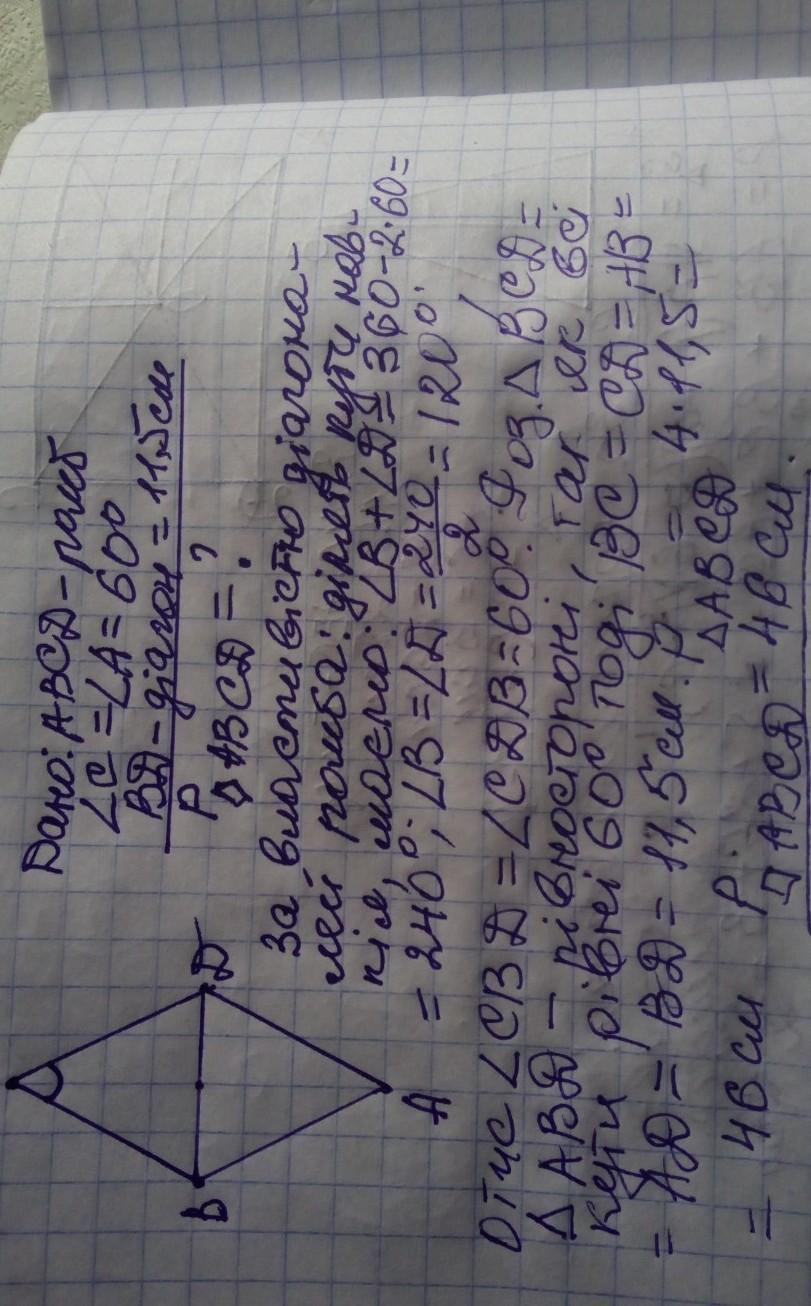 Дано: ABCD - ромб
∠C = ∠A = 60°
BD - діагон = 11,5 см
P ABCD = ?
B
D
A
За властивістю діагона-
лей ромба: ділять кути нав-
піл, маємо: ∠B + ∠D = 360 - 2·60 =
= 240°; ∠B = ∠D = 240/2 = 120°.
Отже ∠CBD = ∠CDB = 60°. Роз. △ BCD =
△ ABD - рівносторонні, так як всі
кути рівні 60° тоді BC = CD = AB =
= AD = BD = 11,5 см. P △ABCD = 4·11,5 =
= 46 см P ABCD = 46 см.